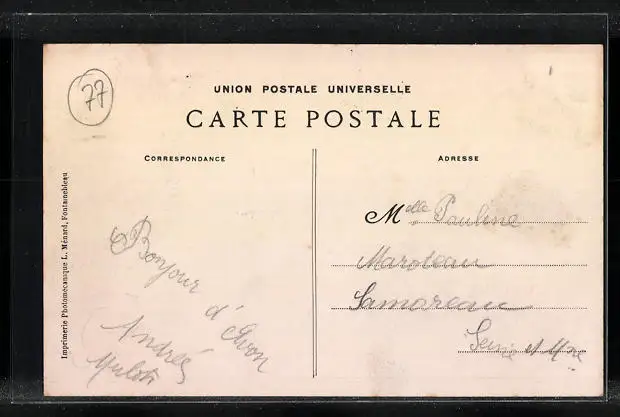 77
UNION POSTALE UNIVERSELLE
CARTE POSTALE
CORRESPONDANCE
ADRESSE
Imprimerie Photomécanique L. Ménard, Fontainebleau
Bonjour
d'Avon
Andrée
Mulot
Melle Pauline
Maroteau
Samoreau
Seine et Mne